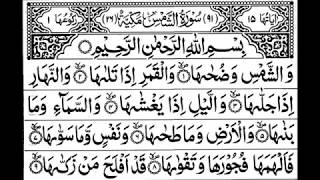 اٰيَاتُهَا ١٥ (٩١) سُوْرَةُ الشَّمْسِ مَكِّيَّةٌ (٢٦) رُكُوْعُهَا ١
بِسْمِ اللهِ الرَّحْمٰنِ الرَّحِيْمِ
وَالشَّمْسِ وَضُحٰىهَا ١ وَالْقَمَرِ اِذَا تَلٰىهَا ٢ وَالنَّهَارِ
اِذَا جَلّٰىهَا ٣ وَالَّيْلِ اِذَا يَغْشٰىهَا ٤ وَالسَّمَآءِ وَمَا
بَنٰىهَا ٥ وَالْاَرْضِ وَمَا طَحٰىهَا ٦ وَنَفْسٍ وَّمَا سَوّٰىهَا ٧
فَاَلْهَمَهَا فُجُوْرَهَا وَتَقْوٰىهَا ٨ قَدْ اَفْلَحَ مَنْ زَكّٰىهَا ٩